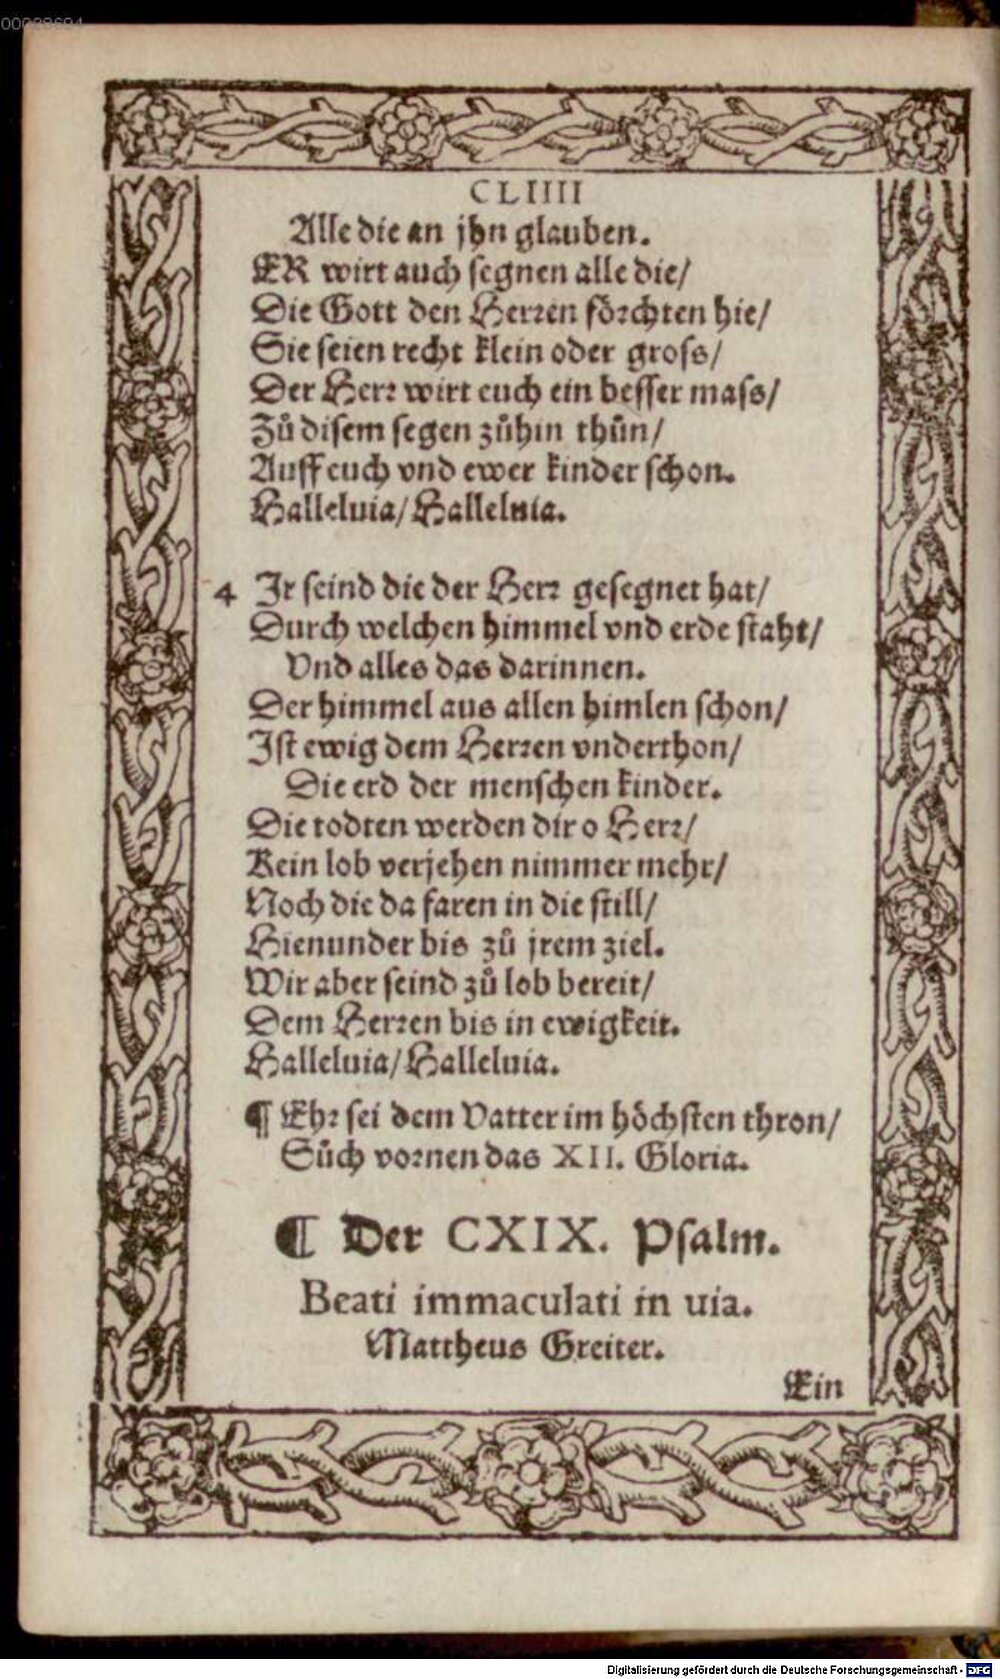 00088694
CLIIII
Alle die an jhn glauben.
ER wirt auch segnen alle die/
Die Gott den Herren förchten hie/
Sie seien recht klein oder gross/
Der Herr wirt euch ein besser mass/
Zů disem segen zůhin thůn/
Auff euch vnd ewer kinder schon.
Halleluia/ Halleluia.
4 Ir seind die der Herr gesegnet hat/
Durch welchen himmel vnd erde staht/
Vnd alles das darinnen.
Der himmel aus allen himlen schon/
Ist ewig dem Herren vnderthon/
Die erd der menschen kinder.
Die todten werden dir o Herr/
Kein lob verjehen nimmer mehr/
Noch die da faren in die still/
Hienunder bis zů jrem ziel.
Wir aber seind zů lob bereit/
Dem Herren bis in ewigkeit.
Halleluia/ Halleluia.
¶ Ehr sei dem Vatter im höchsten thron/
Sůch vornen das XII. Gloria.
¶ Der CXIX. Psalm.
Beati immaculati in uia.
Mattheus Greiter.
Ein
Digitalisierung gefördert durch die Deutsche Forschungsgemeinschaft - DFG